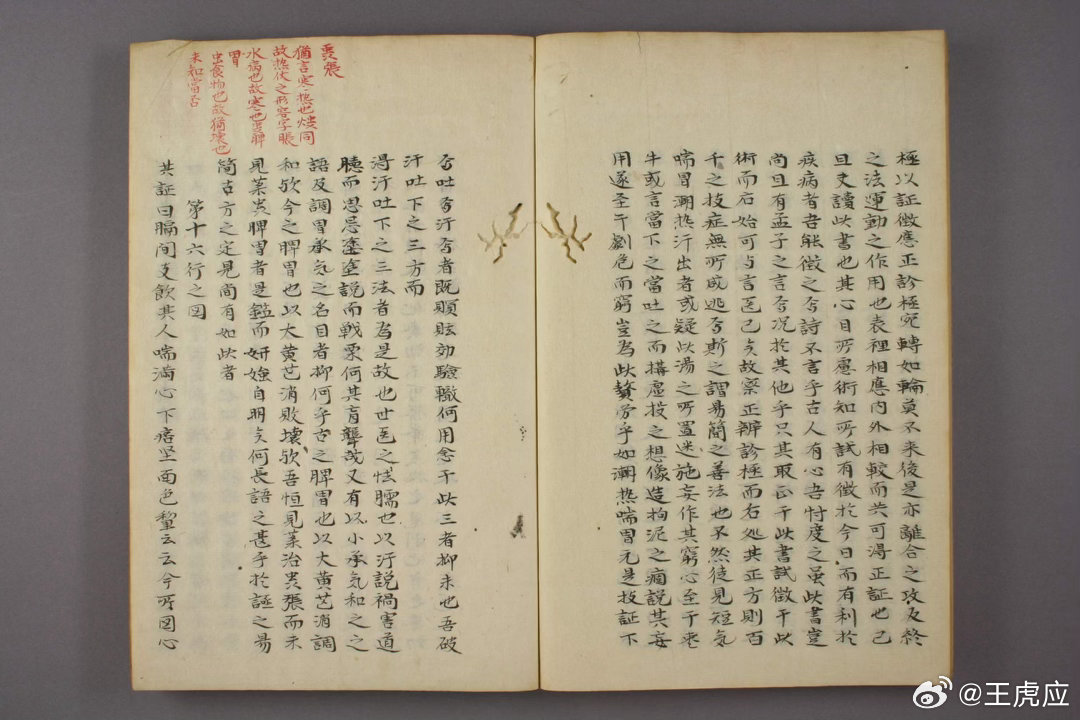 極以証徴應正診極宛轉如輪莫不来後是亦離合之攻反終
之法運動之作用也表裡相應内外相較而共可淂正証也已
且夫讀此書也其心目所慮術知所試有徴於今日而有利於
疾病者吾能徴之否詩不言乎古人有心吾忖度之虽此書豈
尚且有孟子之言否况於其他乎只其取正于此書試徴于此
術而后始可与言医已矣故察正辨診極而右処其正方則百
千之技症無所或逃否斯之謂易簡之善法也不然徒見短気
喘冒潮热汗出者或疑以湯之所置迷施妄作其窮心至于枣
牛或言當下之當吐之而搆虚投之想像造拘泥之痼説其妄
用遂至于劇危而窮豈為此贅労乎如潮热喘冒元是技証下
否吐否汗否者既顛眩効驗輙何用愈于此三者抑未也吾破
汗吐下之三方而
淂汗吐下之三法者為是故也世医之怯臑也以汗説禍害道
聴而思忌塗塗説而戦栗何其盲聾哉又有以小承気和之之
語及調胃承気之名目者抑何乎古之脾胃也以大黄芒消調
和欤今之脾胃也以大黄芒消敗壊欤吾恒見某治畏張而未
見某畏脾胃者是鑑而妍媸自明矣何長語之甚乎於誣之易
簡古方之定見尚有如此者
第十六行之図
共証曰膈間支飲其人喘満心下痞坚面色黧云云今所図心
畏張
猶言寒热也焌同
故热伏之形容字賬
水病也故寒也畏脾
胃
虫食物也故猶壊也
未知當否
@王虎应